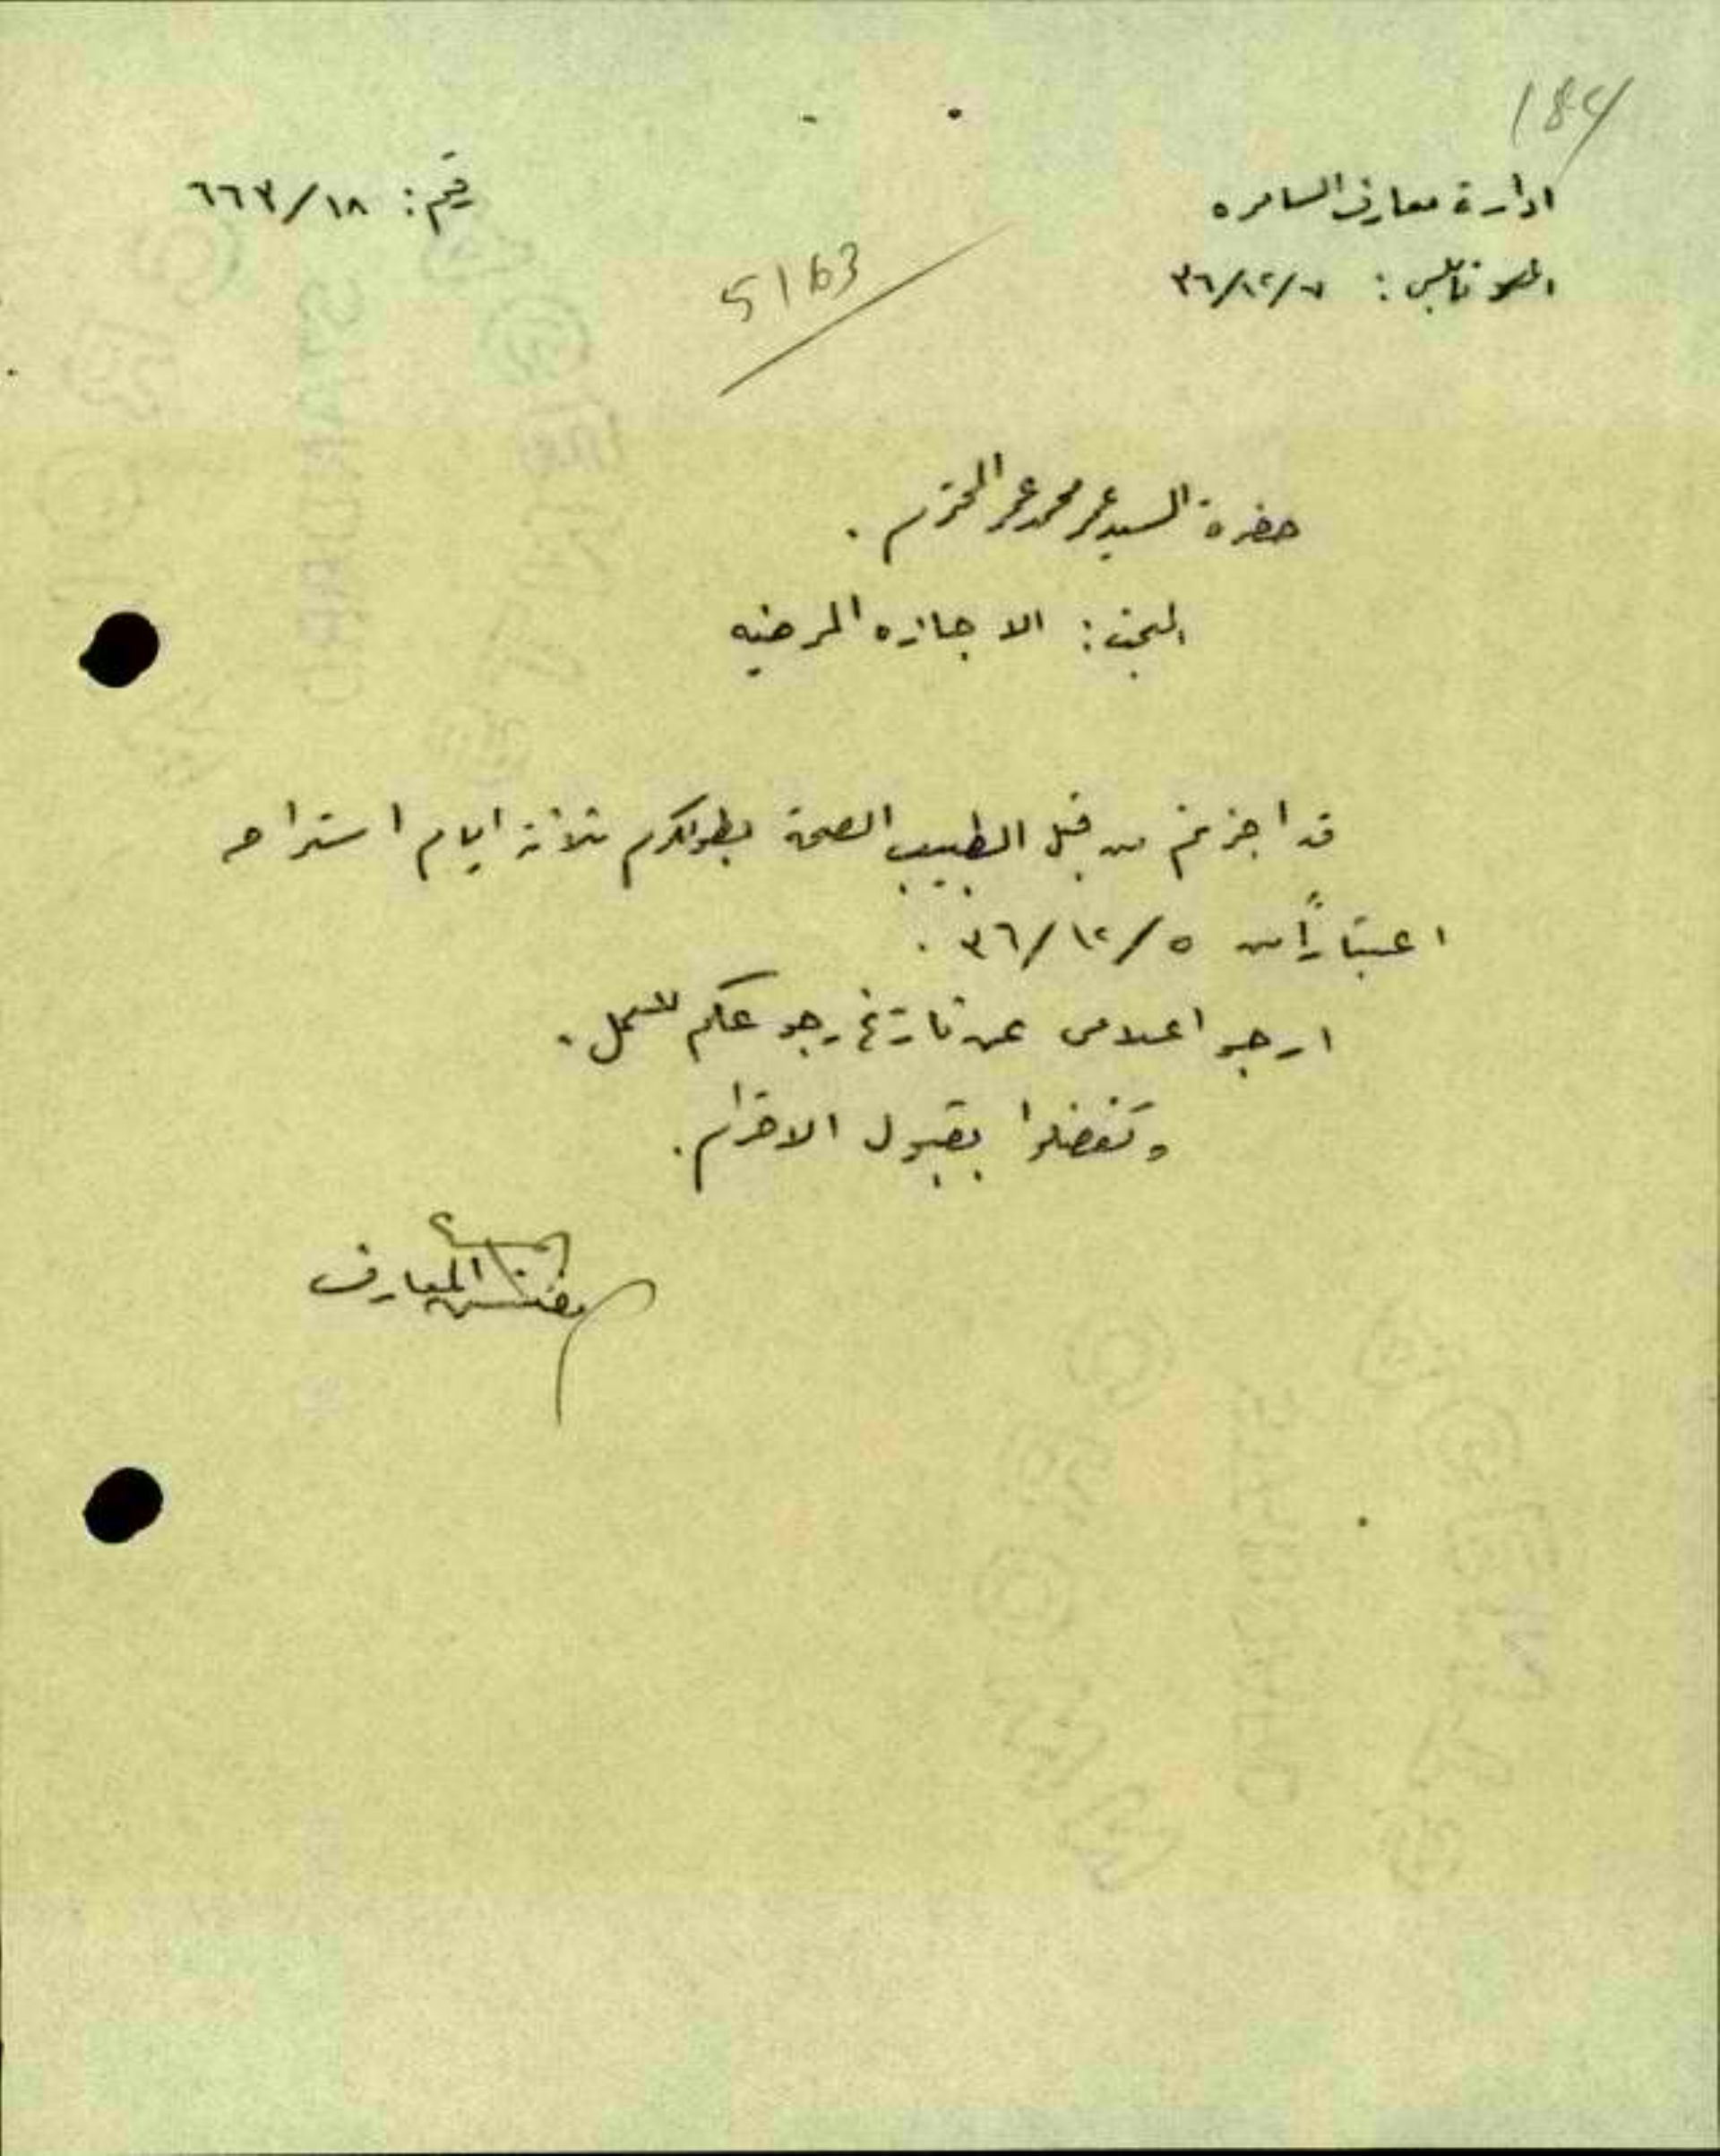 184
ادارة معارف السامره
رقم: ٦٦٣/١٨
نابلس: ٣٦/١٢/٧
5163
حضرة السيد عمر محمد عمر المحترم.
البحث: الاجازه المرضيه
قد اجزتم من قبل الطبيب الصحة بطولكرم ثلاثة ايام استراحه
اعتباراً من ٣٦/١٢/٥.
ارجو اعلامي عن تاريخ رجوعكم للعمل.
وتفضلوا بقبول الاحترام.
مفتش المعارف